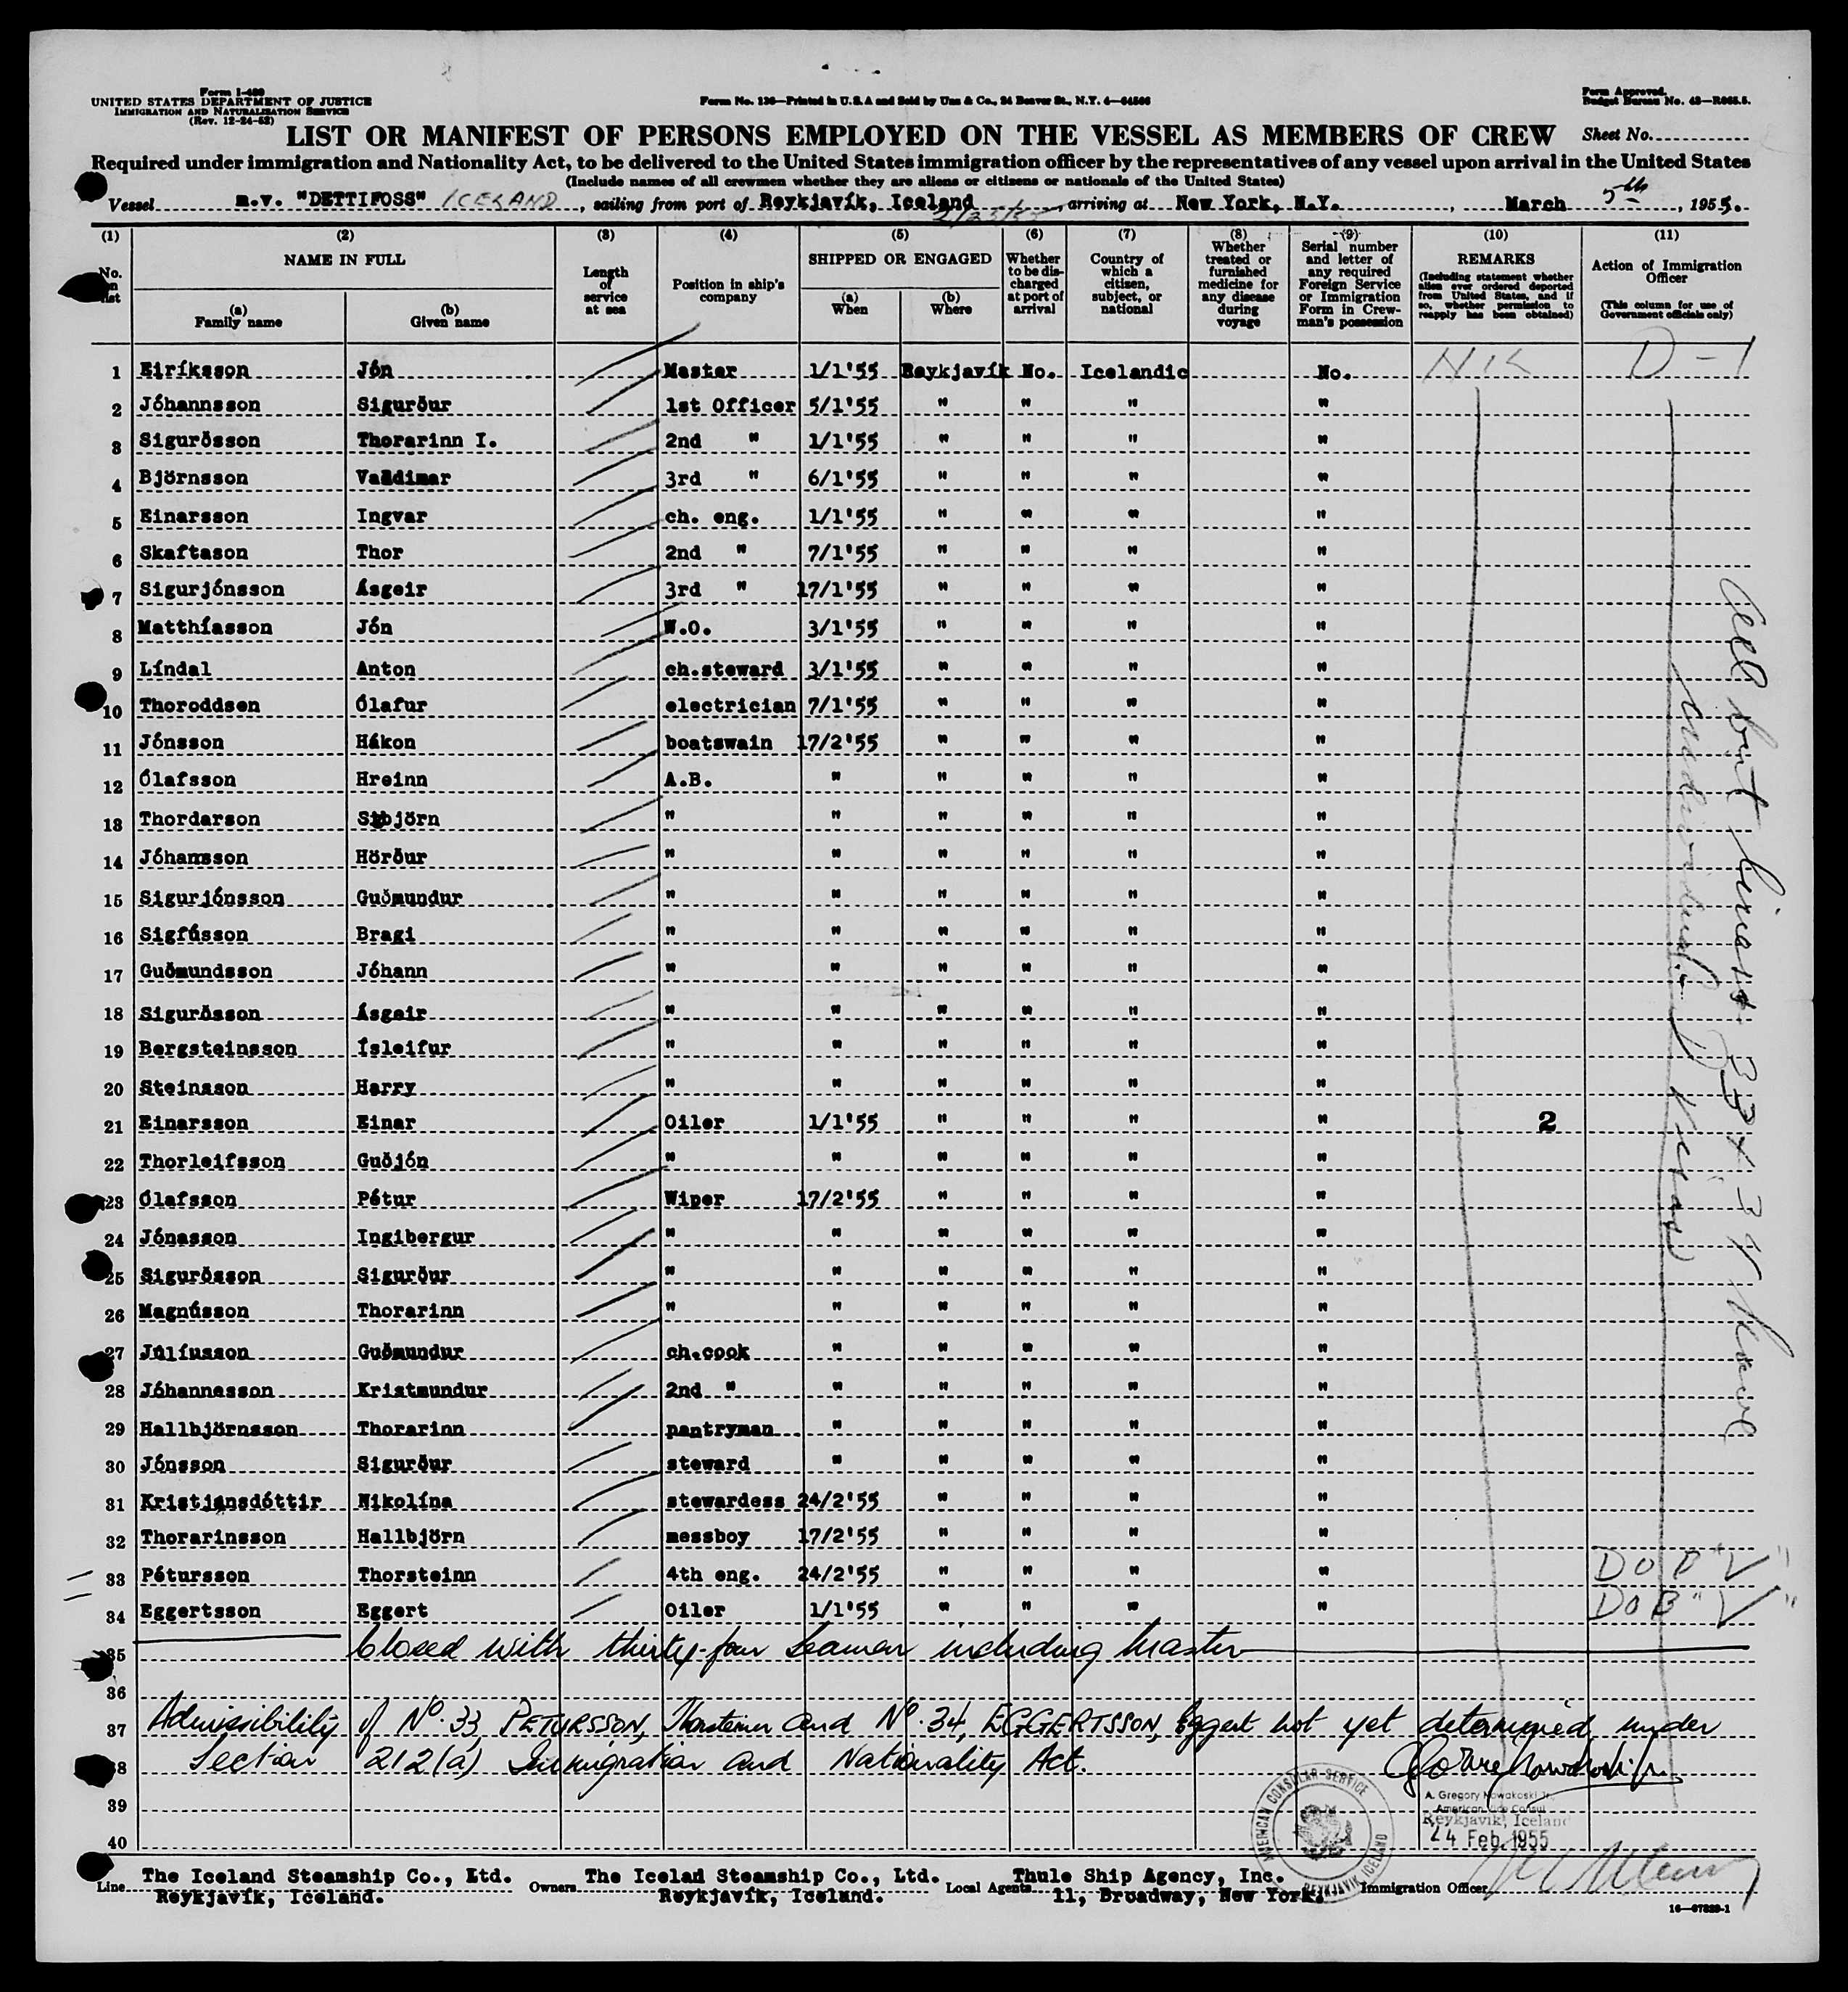 Form I-489
UNITED STATES DEPARTMENT OF JUSTICE
IMMIGRATION AND NATURALIZATION SERVICE
(Rev. 12-24-52)
Form No. 136—Printed in U.S.A and Sold by Unz & Co., 24 Beaver St., N.Y. 4—64566
Form Approved.
Budget Bureau No. 43—R065.5.
LIST OR MANIFEST OF PERSONS EMPLOYED ON THE VESSEL AS MEMBERS OF CREW Sheet No.
Required under immigration and Nationality Act, to be delivered to the United States immigration officer by the representatives of any vessel upon arrival in the United States
(Include names of all crewmen whether they are aliens or citizens or nationals of the United States)
Vessel m.v. "DETTIFOSS" ICELAND, sailing from port of Reykjavík, Iceland, arriving at New York, N.Y., March 5th, 1955.
(1) (2) (3) (4) (5) (6) (7) (8) (9) (10) (11)
No. on list
NAME IN FULL
(a) Family name
(b) Given name
Length of service at sea
Position in ship's company
SHIPPED OR ENGAGED
(a) When
(b) Where
Whether to be discharged at port of arrival
Country of which a citizen, subject, or national
Whether treated or furnished medicine for any disease during voyage
Serial number and letter of any required Foreign Service or Immigration Form in Crewman's possession
REMARKS
(Including statement whether alien ever ordered deported from United States, and if so, whether permission to reapply has been obtained)
Action of Immigration Officer
(This column for use of Government officials only)
1 Eiríksson Jón Master 1/1'55 Reykjavík No. Icelandic No. D-1
2 Jóhannsson Sigurður 1st Officer 5/1'55 " " " "
3 Sigurðsson Thorarinn I. 2nd " 1/1'55 " " " "
4 Björnsson Valdimar 3rd " 6/1'55 " " " "
5 Einarsson Ingvar ch. eng. 1/1'55 " " " "
6 Skaftason Thor 2nd " 7/1'55 " " " "
7 Sigurjónsson Ásgeir 3rd " 17/1'55 " " " "
8 Matthíasson Jón W.O. 3/1'55 " " " "
9 Líndal Anton ch.steward 3/1'55 " " " "
10 Thoroddsen Ólafur electrician 7/1'55 " " " "
11 Jónsson Hákon boatswain 17/2'55 " " " "
12 Ólafsson Hreinn A.B. " " " " "
13 Thordarson Sigbjörn " " " " " "
14 Jóhansson Hörður " " " " " "
15 Sigurjónsson Guðmundur " " " " " "
16 Sigfússon Bragi " " " " " "
17 Guðmundsson Jóhann " " " " " "
18 Sigurðsson Ásgeir " " " " " "
19 Bergsteinsson Ísleifur " " " " " "
20 Steinsson Harry " " " " " "
21 Einarsson Einar Oiler 1/1'55 " " " " 2
22 Thorleifsson Guðjón " " " " " "
23 Ólafsson Pétur Wiper 17/2'55 " " " "
24 Jónasson Ingibergur " " " " " "
25 Sigurðsson Sigurður " " " " " "
26 Magnússon Thorarinn " " " " " "
27 Júlíusson Guðmundur ch.cook " " " " "
28 Jóhannesson Kristmundur 2nd " " " " " "
29 Hallbjörnsson Thorarinn pantryman " " " " "
30 Jónsson Sigurður steward " " " " "
31 Kristjansdóttir Nikolína stewardess 24/2'55 " " " "
32 Thorarinsson Hallbjörn messboy 17/2'55 " " " "
33 Pétursson Thorsteinn 4th eng. 24/2'55 " " " "
34 Eggertsson Eggert Oiler 1/1'55 " " " " DOB "V"
35 Closed with thirty-four Seamen including Master
36
37 Admissibility of No. 33, PETURSSON, Thorsteinn and No. 34, EGGERTSSON, Eggert not yet determined under
38 Section 212(a) Immigration and Nationality Act.
39
40
All but linans 33 + 34
AMERICAN CONSULAR SERVICE
REYKJAVIK ICELAND
A. Gregory Nowakoski Jr.
American Vice Consul
Reykjavik, Iceland
24 Feb. 1955
Line The Iceland Steamship Co., Ltd. Owners The Icelad Steamship Co., Ltd. Local Agents Thule Ship Agency, Inc. Immigration Officer
Reykjavík, Iceland. Reykjavík, Iceland. 11, Broadway, New York.
16—67829-1